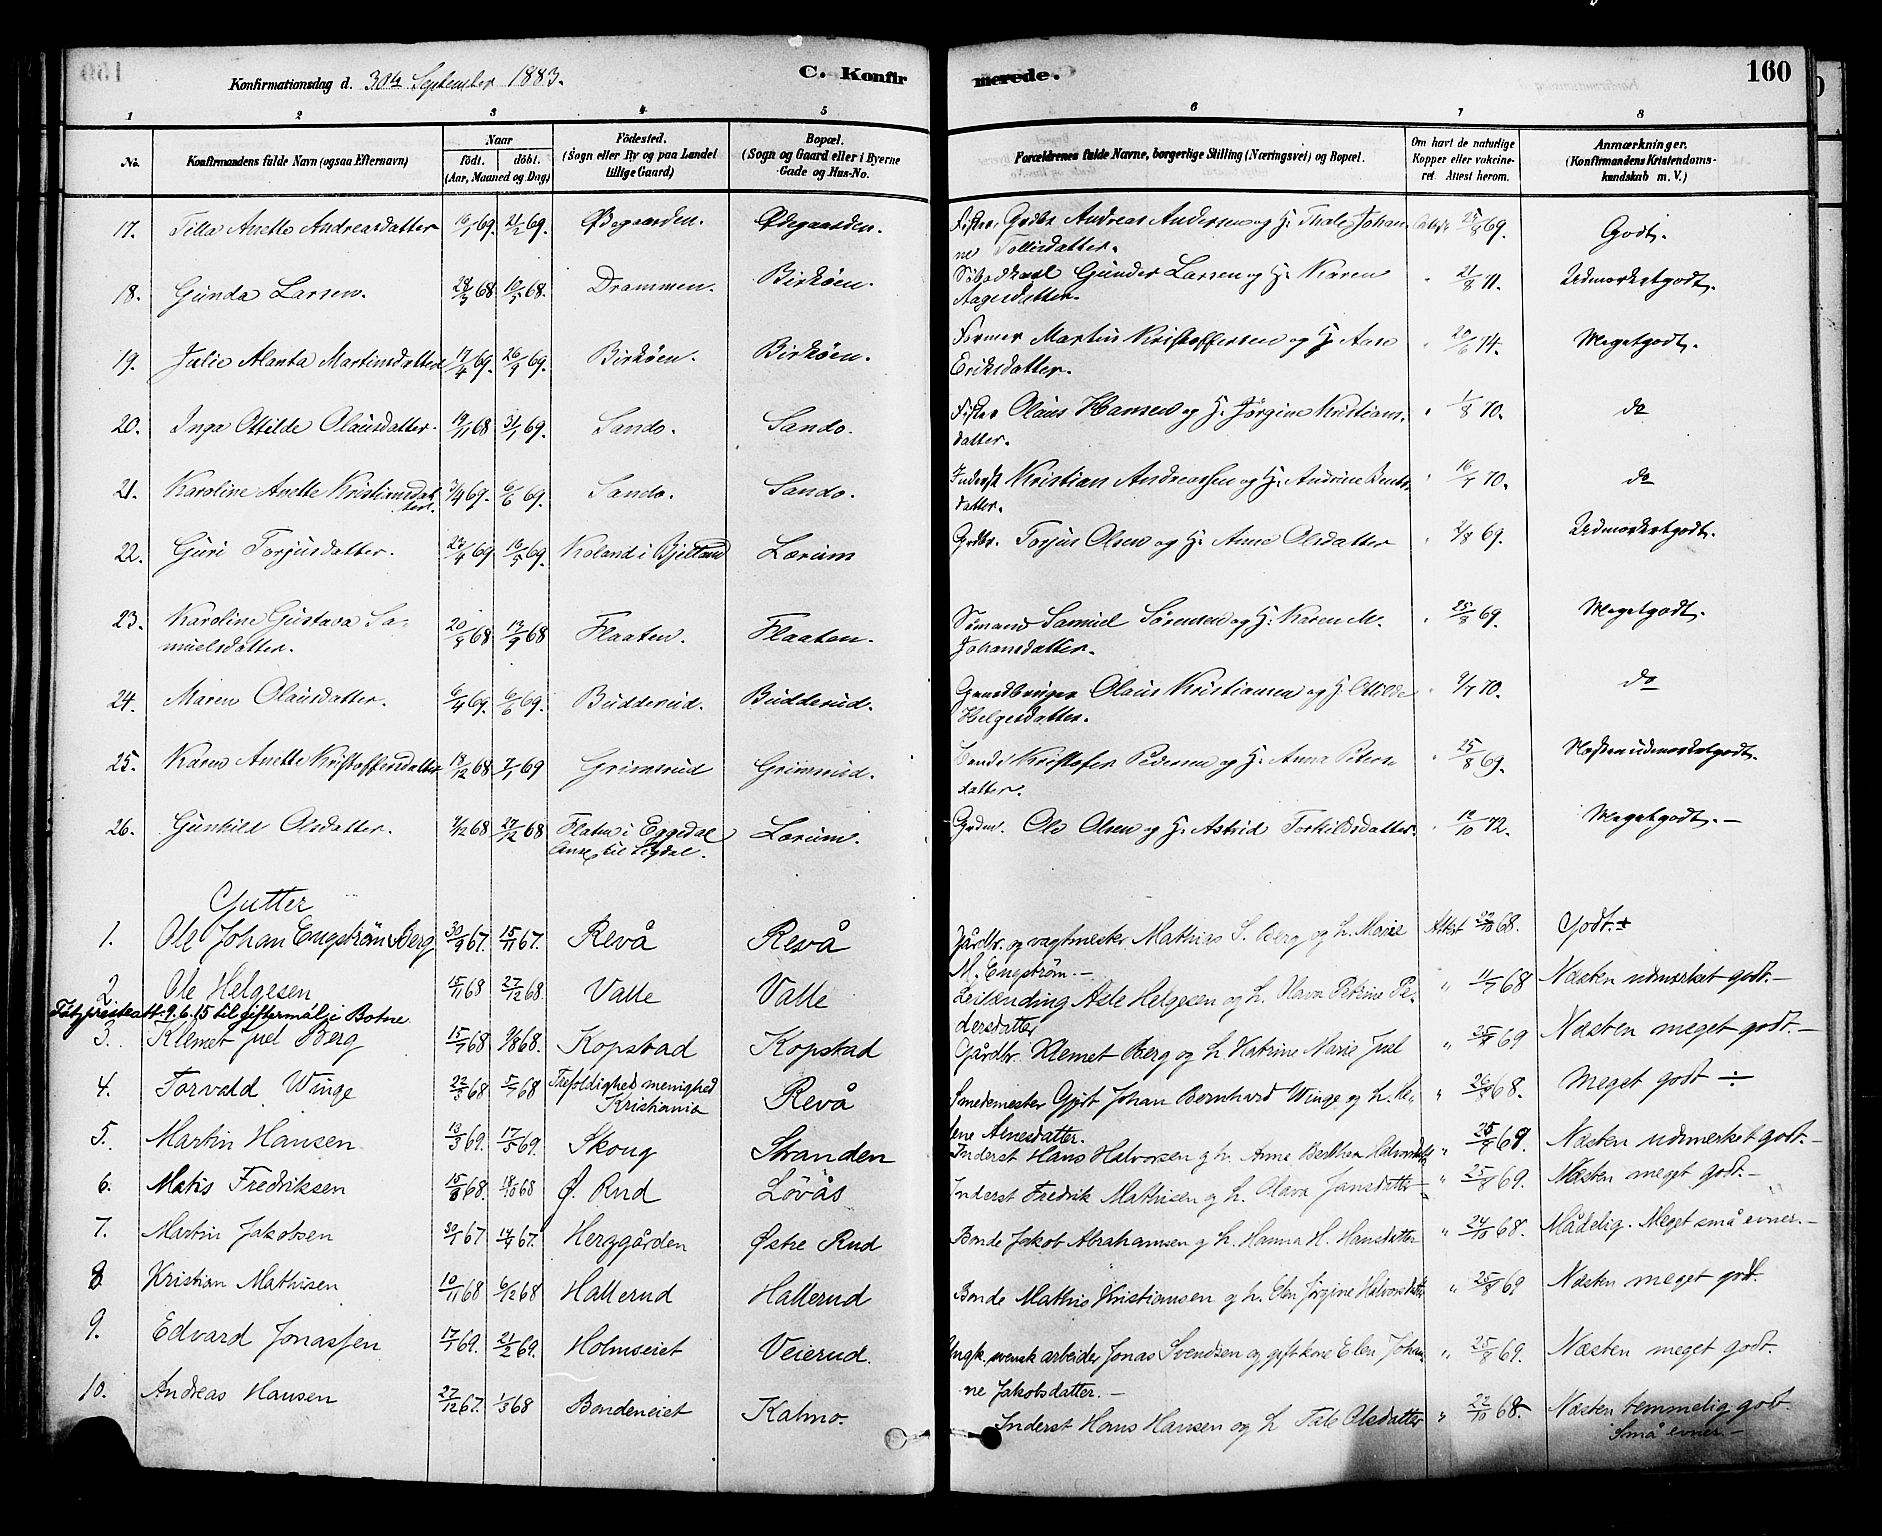 160
Konfirmationsdag d. 30te September 1883.
C. Konfirmerede.
1 2 3 4 5 6 7 8
No.
Konfirmandens fulde Navn (ogsaa Efternavn)
Naar
födt. döbt.
(Aar, Maaned og Dag)
Födested.
(Sogn eller By og paa Landet
tillige Gaard)
Bopæl.
(Sogn og Gaard eller i Byerne
Gade og Hus-No.
Forældrenes fulde Navne, borgerlige Stilling (Næringsvei) og Bopæl.
Om havt de naturlige
Kopper eller vakcine-
ret. Attest herom.
Anmærkninger.
(Konfirmandens Kristendoms-
kundskab m. V.)
17. Tilla Anette Andreasdatter 16/1 69. 21/2 69. Ødegaarden. Ødegaarden. Fisker Grdbr Andreas Andersen og H. Thale Johan- 25/8 69. Godt.
ne Tollisdatter.
18. Gunda Larsen. 28/3 68 10/5 68. Drammen. Birköen. Gunder Larsen og H. Karen " 21/8 71. Udmærketgodt.
Aagesdatter.
19. Julie Alanta Martinsdatter 17/4 69. 26/9 69. Birköen. Birköen. Former Martin Kristoffersen og H. Aase " 20/6 74. Megetgodt.
Eriksdatter.
20. Inga Otilde Olausdatter. 19/11 68 31/1 69. Sando. Sando. Fisker Olaus Hansen og H. Jørgine Kristians- " 1/8 70. do
datter.
21. Karoline Anette Kristiansdat- 3/4 69. 6/6 69. Sando. Sando. Inderst Kristian Andreassen og H. Andrine Bents- " 16/7 70. do
ter. datter.
22. Guri Torjusdatter. 23/4 69 16/5 69. Koland i Bjelland Lærum Grdbr. Torjus Olsen og H. Anne Olsdatter " 2/8 69. Udmærketgodt.
23. Karoline Gustava Sa- 20/8 68 13/9 68 Flaaten. Flaaten. Sömand Samuel Sørensen og H. Karen M. " 25/8 69. Megetgodt.
muelsdatter. Johansdatter.
24. Maren Olausdatter. 6/4 69. 6/6 69. Budderud. Budderud. Gaardbruger Olaus Kristiansen og H. Otilde " 9/7 70. do
Helgesdatter.
25. Karen Anette Kristoffersdatter 13/12 68 7/1 69 Grimsrud Grimsrud. Bonde Kristofer Pedersen og H. Anna Peters- " 25/8 69. Næstenudmærketgodt.
datter.
26. Gunhild Olsdatter. 7/12 68 27/12 68 Flaten i Eggedal Lærum. Grdm. Ole Olsen og H. Astrid Torkildsdatter. " 12/10 72. Megetgodt.—
Anex til Sigdal.
Gutter
1. Ole Johan Engström Berg 30/9 67. 15/11 67. Revå Revå Gårdbr. og vagtmester Mathias S. Berg og h. Marie Attest 22/10 68. Godt.±
M. Engström.—
2. Ole Helgesen 15/11 68 27/12 68. Valle Valle Leilending Asle Helgesen og h. Olava Petrine Pe- " 11/7 68 Næsten udmærket godt.—
dersdatter
Fåt presteatt. 9.6.15 til giftermål i Botne.
3. Klemet Juel Berg 15/7 68 9/8 68. Kopstad Kopstad Gårdbr. Klemet Berg og h. Katrine Marie Juel " 25/8 69 Næsten meget godt.—
4. Torvald Winge 22/3 68 5/7 68 Trefoldighed menighed Revå Smedemester Gjört Johan Bernhard Winge og h. He- " 26/8 68. Meget godt ÷
Kristiania lene Arnesdatter.
5. Martin Hansen 13/3 69. 17/5 69. Skoug Stranden Inderst Hans Halvorsen og h. Anne Berthea Halvorsdatter " 25/8 69 Næsten udmerket godt.—
6. Matis Fredriksen 15/8 68. 18/10 68 Ø. Rud Lövås Inderst Fredrik Mathisen og h. Olava Jansdatter — " 25/8 69. Næsten meget godt.—
7. Martin Jakobsen 30/7 67 14/9 67. Herggården Østre Rud Bonde Jakob Abrahamsen og h. Hanna H. Hansdatter " 24/10 68. Mådelig. Meget små evner.—
8 Kristian Mathisen 10/11 68 6/12 68 Hallerud Hallerud Bonde Mathis Kristiansen og h. Elen Jörgine Halvorsdatter " 25/8 69 Næsten meget godt.
9. Edvard Jonassen 17/1 69. 21/2 69. Holmseiet Veierud. Ungk. svensk arbeider Jonas Svendsen og gift kone Elen Johan- " 25/8 69. Næsten meget godt.
ne Jakobsdatter.—
10. Andreas Hansen 27/12 67. 1/3 68 Bondeneiet Kalmo. Inderst Hans Hansen og h. Olsdatter " 22/10 68. Næsten temmelig godt.
Små evner.—